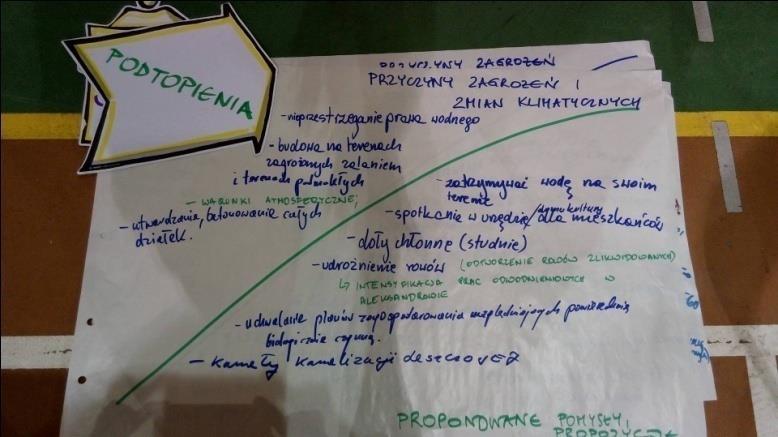 PODTOPIENIA
ZAGROŻEŃ
PRZYCZYNY ZAGROŻEŃ I
ZMIAN KLIMATYCZNYCH
- nieprzestrzeganie prawa wodnego
- budowa na terenach
zagrożonych zalaniem
i terenach podmokłych
- WARUNKI ATMOSFERYCZNE,
- utwardzanie, betonowanie całych
działek.
- zatrzymywać wodę na swoim
terenie
- spotkanie w urzędzie/domu kultury dla mieszkańców
- doły chłonne (studnie)
- udrożnienie rowów (ODTWORZENIE ROWÓW ZLIKWIDOWANYCH)
↳ INTENSYFIKACJA PRAC ODWODNIENIOWYCH W
ALEKSANDROWIE
- uchwalanie planów zagospodarowania uwzględniających powierzchnię
biologicznie czynną.
- kanały kanalizacji deszczowej
PROPONOWANE POMYSŁY,